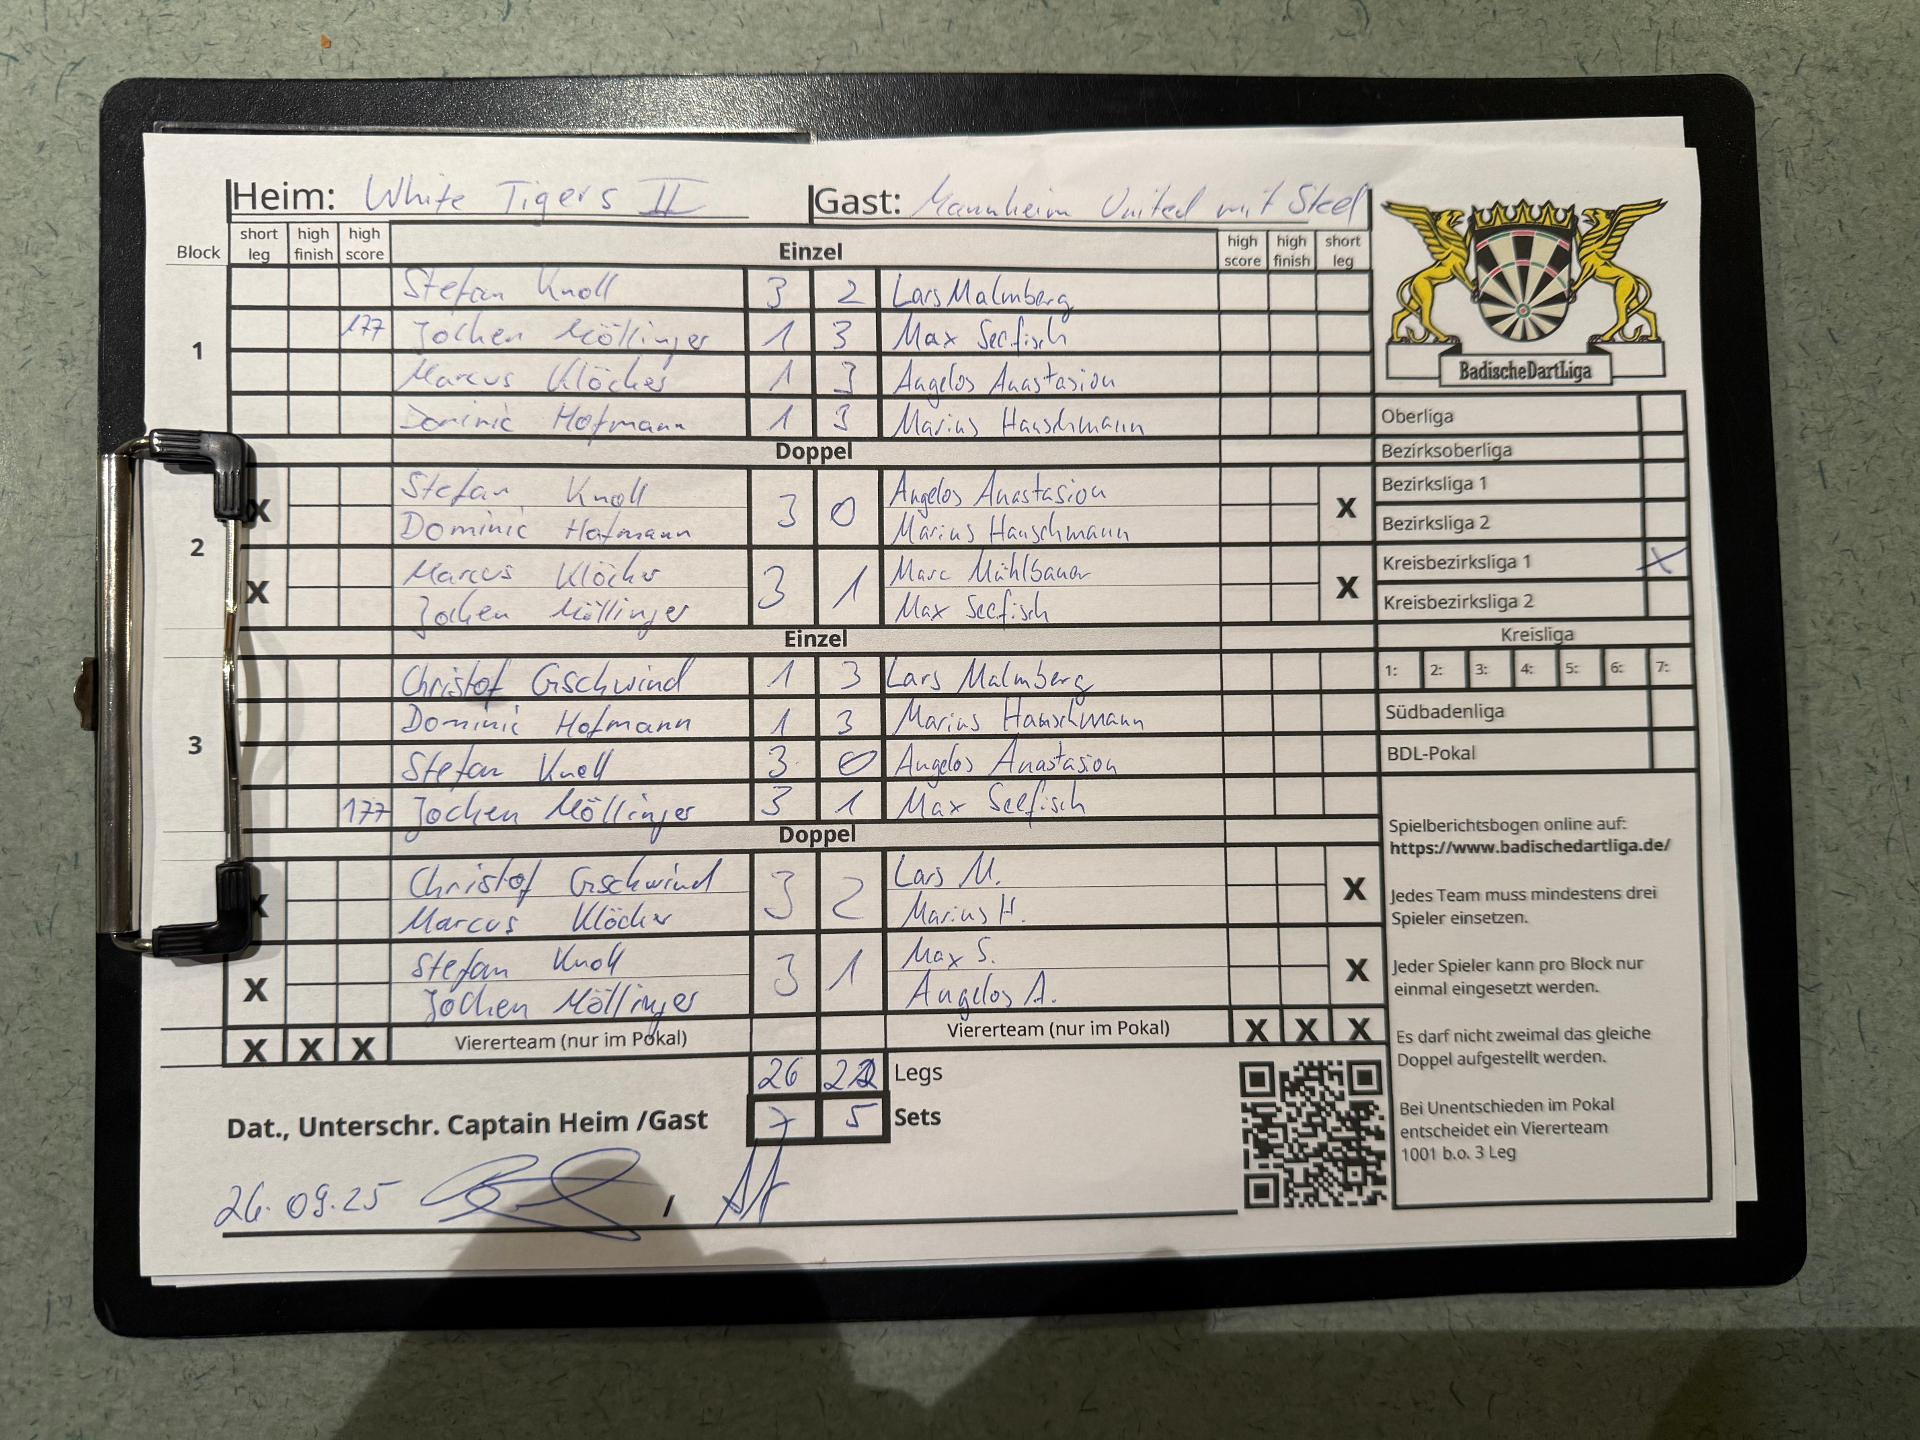 Heim: White Tigers II Gast: Mannheim United mit Steel
Block short leg high finish high score Einzel high score high finish short leg
1
Stefan Knoll 3 2 Lars Malmberg
177 Jochen Möllinger 1 3 Max Seefisch
Marcus Klöcker 1 3 Angelos Anastasiou
Dominic Hofmann 1 3 Marius Hauschmann
Doppel
2
X Stefan Knoll 3 0 Angelos Anastasiou X
Dominic Hofmann Marius Hauschmann
X Marcus Klöcker 3 1 Marc Mühlbauer X
Jochen Möllinger Max Seefisch
Einzel
3
Christof Gschwind 1 3 Lars Malmberg
Dominic Hofmann 1 3 Marius Hauschmann
Stefan Knoll 3 0 Angelos Anastasiou
177 Jochen Möllinger 3 1 Max Seefisch
Doppel
X Christof Gschwind 3 2 Lars M. X
Marcus Klöcker Marius H.
X Stefan Knoll 3 1 Max S. X
Jochen Möllinger Angelos A.
X X X Viererteam (nur im Pokal) Viererteam (nur im Pokal) X X X
26 22 Legs
7 5 Sets
Dat., Unterschr. Captain Heim /Gast
26.09.25 /
BadischeDartLiga
Oberliga
Bezirksoberliga
Bezirksliga 1
Bezirksliga 2
Kreisbezirksliga 1 X
Kreisbezirksliga 2
Kreisliga
1: 2: 3: 4: 5: 6: 7:
Südbadenliga
BDL-Pokal
Spielberichtsbogen online auf:
https://www.badischedartliga.de/
Jedes Team muss mindestens drei
Spieler einsetzen.
Jeder Spieler kann pro Block nur
einmal eingesetzt werden.
Es darf nicht zweimal das gleiche
Doppel aufgestellt werden.
Bei Unentschieden im Pokal
entscheidet ein Viererteam
1001 b.o. 3 Leg